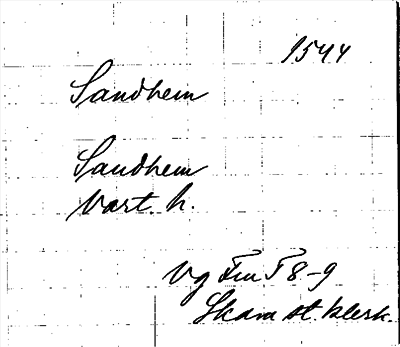 1544
Sandhem
Sandhem
Vart. h.
Vg Fru T 8-9
Skara st. klerk.